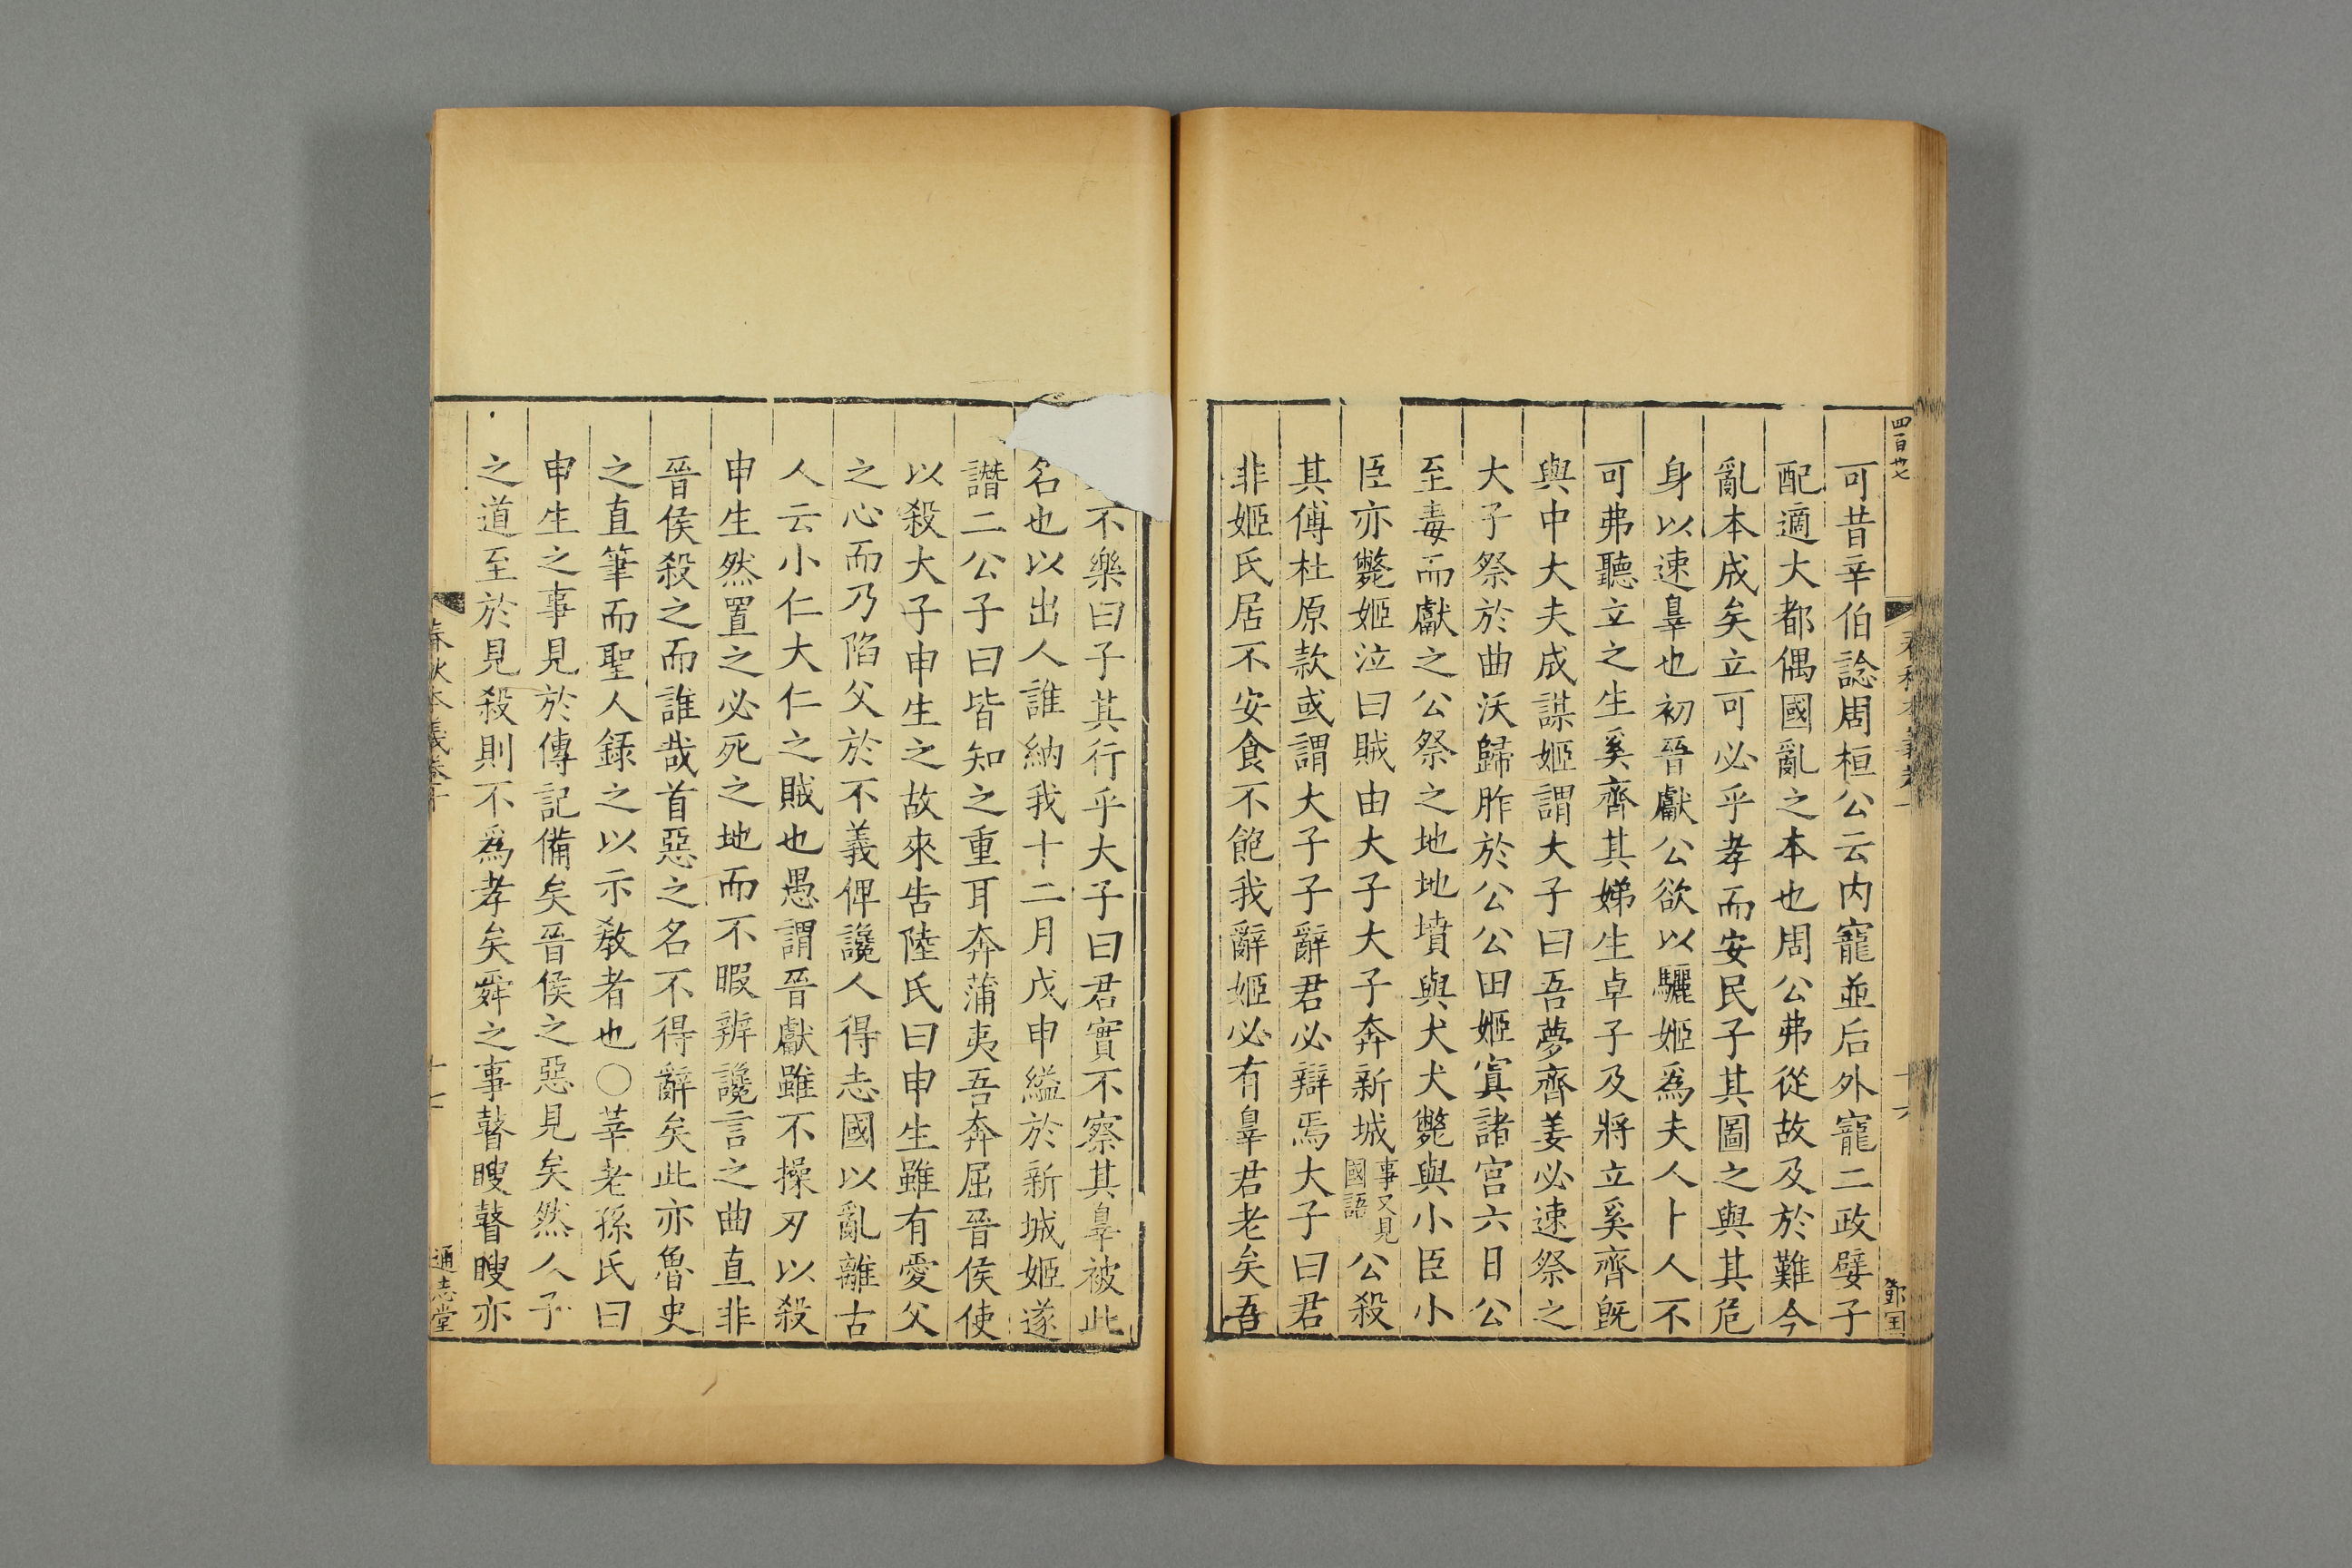 四百卅七
鄧国
可昔辛伯諗周桓公云内寵並后外寵二政嬖子
配適大都偶國亂之本也周公弗從故及於難今
亂本成矣立可必乎孝而安民子其圖之與其危
身以速辠也初晉獻公欲以驪姬爲夫人卜人不
可弗聽立之生奚齊其娣生卓子及將立奚齊旣
與中大夫成謀姬謂大子曰吾夢齊姜必速祭之
大子祭於曲沃歸胙於公公田姬寘諸宮六日公
至毒而獻之公祭之地地墳與犬犬斃與小臣小
臣亦斃姬泣曰賊由大子大子奔新城事又見國語公殺
其傅杜原款或謂大子子辭君必辯焉大子曰君
非姬氏居不安食不飽我辭姬必有辠君老矣吾
不樂曰子其行乎大子曰君實不察其辠被此
名也以出人誰納我十二月戊申縊於新城姬遂
譖二公子曰皆知之重耳奔蒲夷吾奔屈晉侯使
以殺大子申生之故來告陸氏曰申生雖有愛父
之心而乃陷父於不義俾讒人得志國以亂離古
人云小仁大仁之賊也愚謂晉獻雖不操刃以殺
申生然置之必死之地而不暇辨讒言之曲直非
晉侯殺之而誰哉首惡之名不得辭矣此亦魯史
之直筆而聖人録之以示教者也〇莘老孫氏曰
申生之事見於傳記備矣晉侯之惡見矣然人子
之道至於見殺則不爲孝矣舜之事瞽瞍瞽瞍亦
春秋本義卷十
通志堂